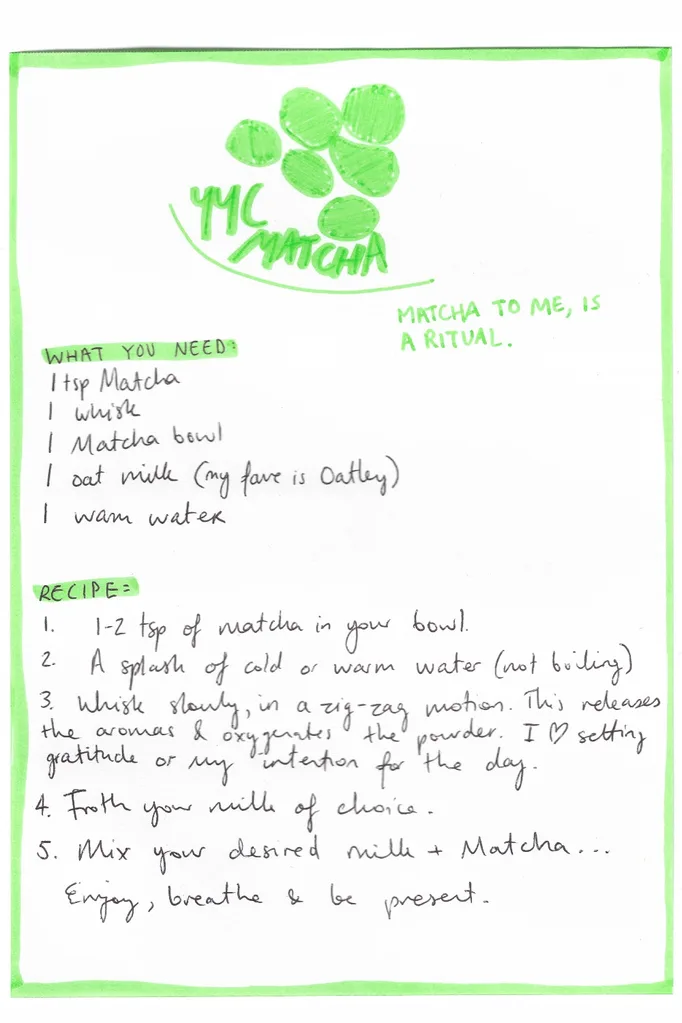 YYC
MATCHA
MATCHA TO ME, IS
A RITUAL.
WHAT YOU NEED:
1 tsp Matcha
1 whisk
1 Matcha bowl
1 oat milk (my fave is Oatley)
1 warm water
RECIPE:
1. 1-2 tsp of matcha in your bowl.
2. A splash of cold or warm water (not boiling)
3. Whisk slowly, in a zig-zag motion. This releases
the aromas & oxygenates the powder. I ♡ setting
gratitude or my intention for the day.
4. Froth your milk of choice.
5. Mix your desired milk + Matcha...
Enjoy, breathe & be present.